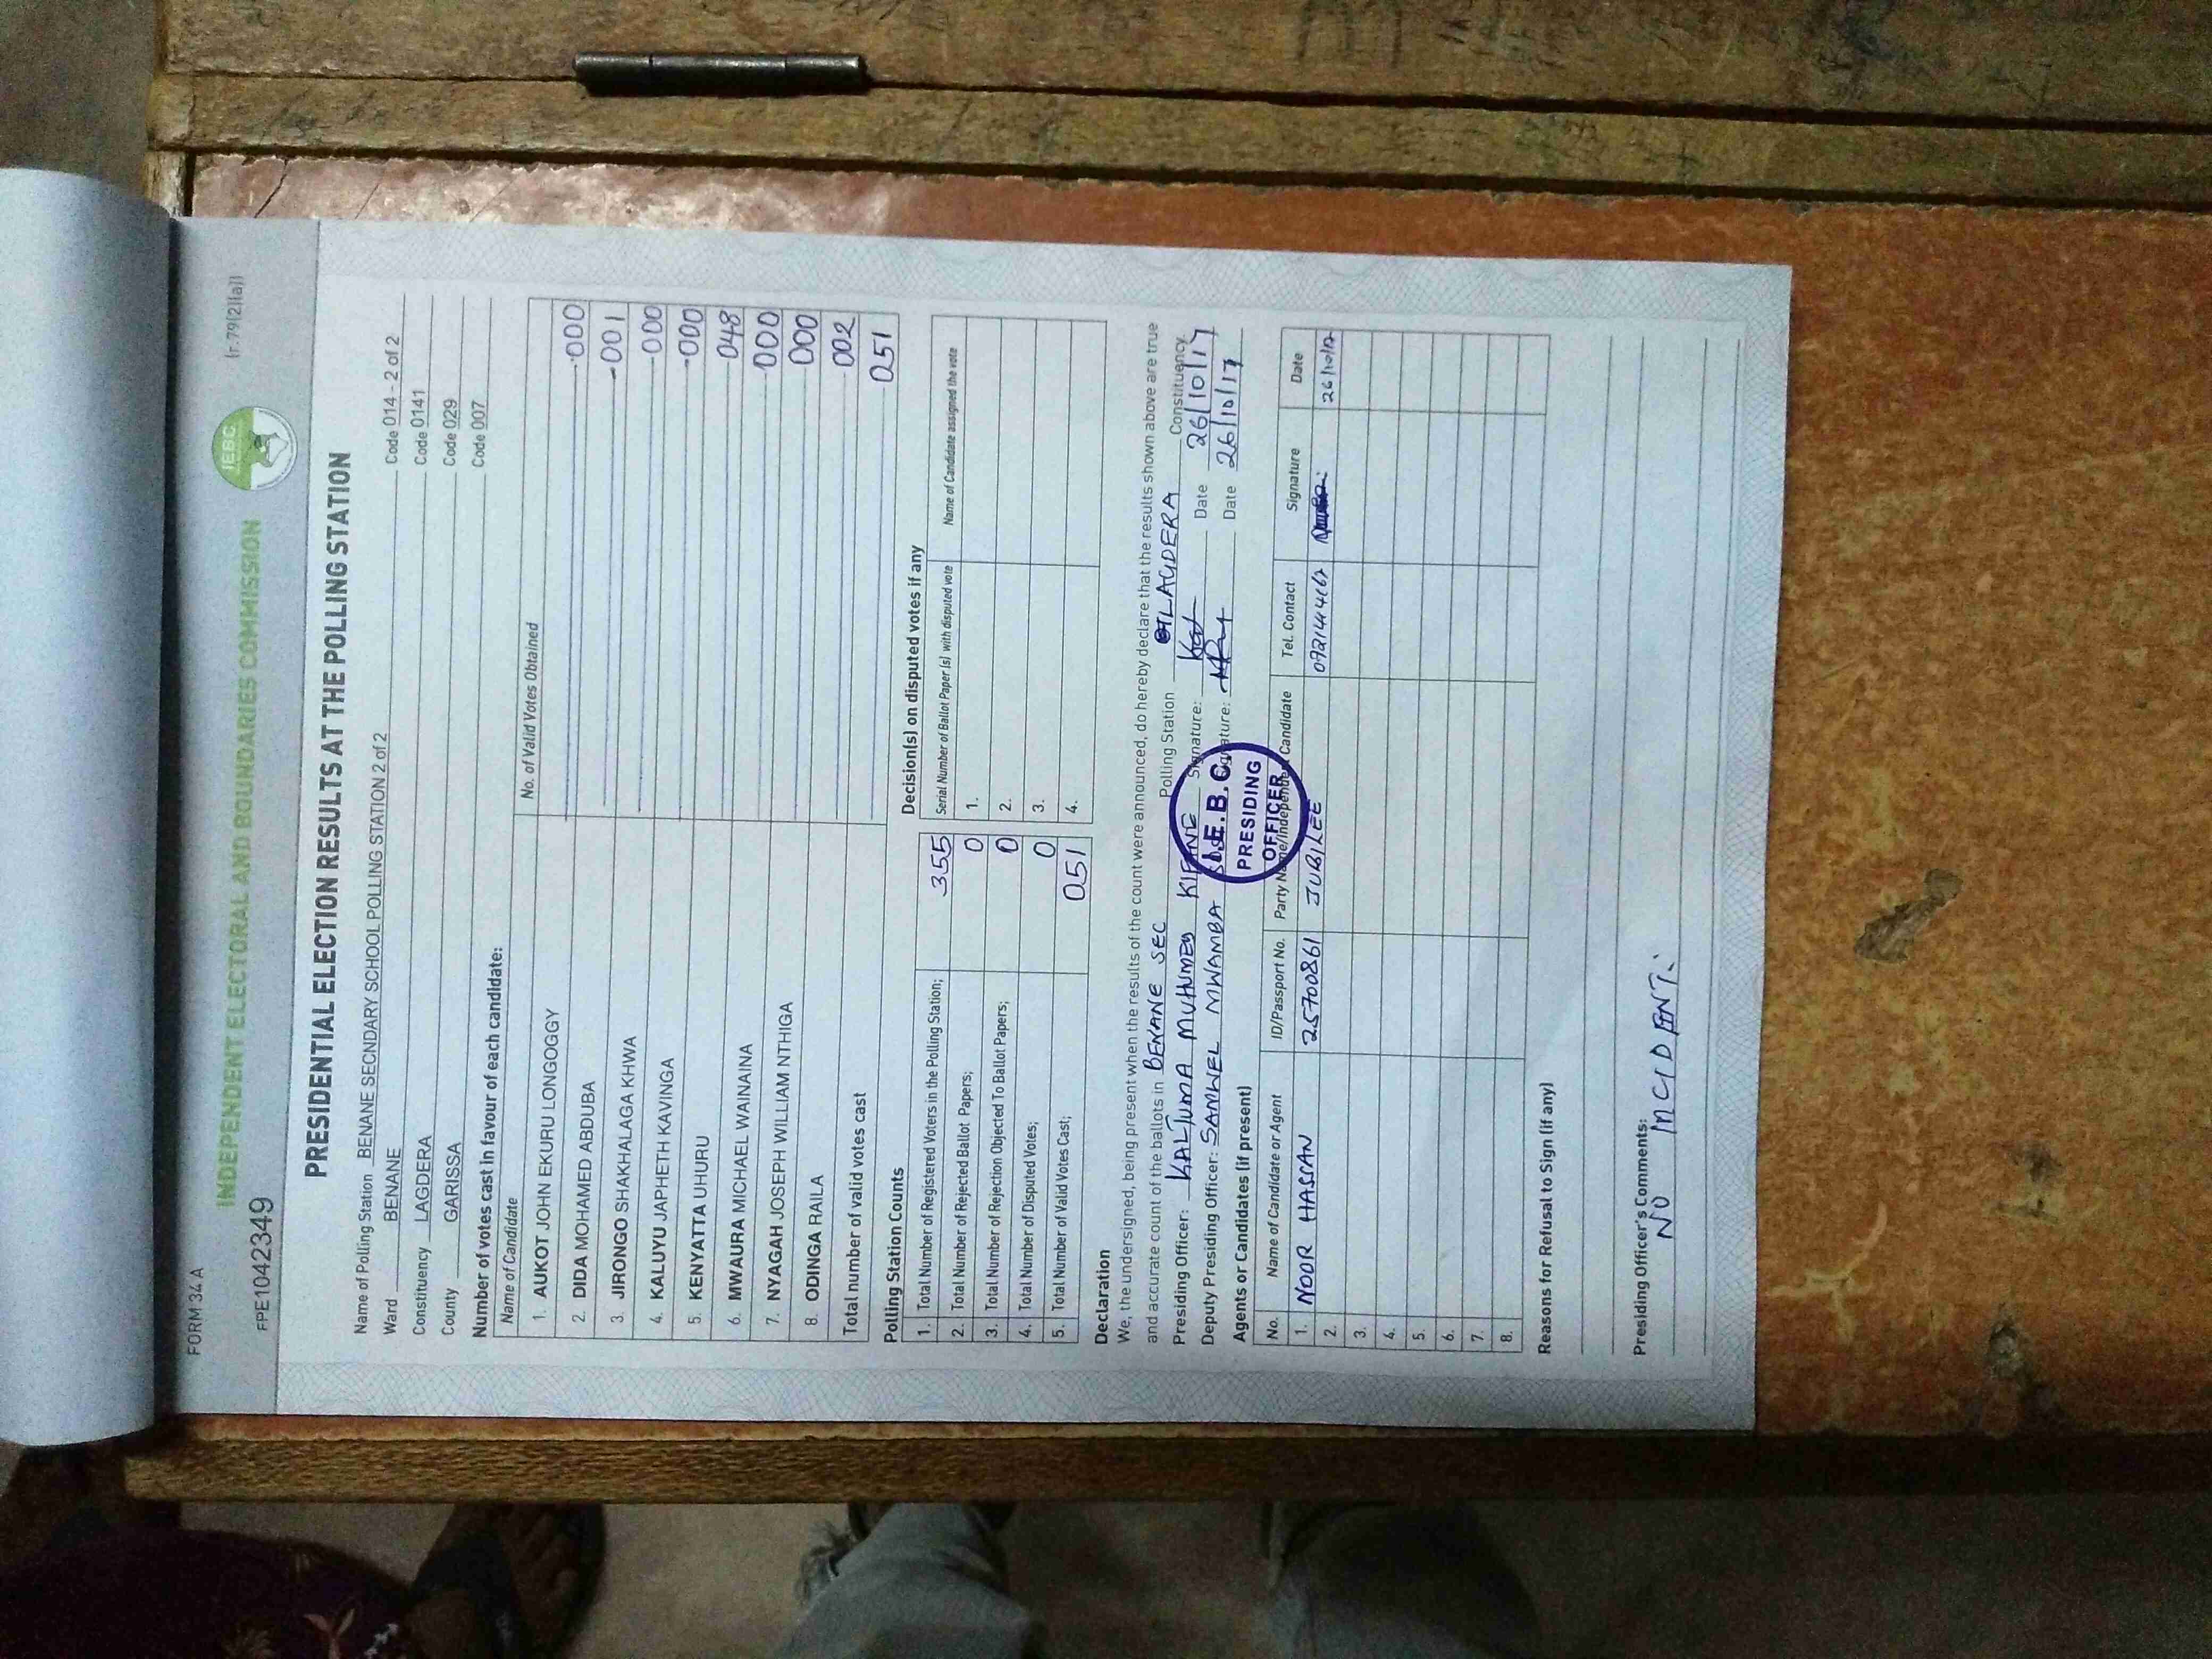 FORM 34 A
INDEPENDENT ELECTORAL AND BOUNDARIES COMMISSION
IEBC
(r.79(2)(a))
FPE1042349
PRESIDENTIAL ELECTION RESULTS AT THE POLLING STATION
Name of Polling Station BENANE SECNDARY SCHOOL POLLING STATION 2 of 2 Code 014 - 2 of 2
Ward BENANE Code 0141
Constituency LAGDERA Code 029
County GARISSA Code 007
Number of votes cast in favour of each candidate:
Name of Candidate No. of Valid Votes Obtained
1. AUKOT JOHN EKURU LONGOGGY 000
2. DIDA MOHAMED ABDUBA 001
3. JIRONGO SHAKHALAGA KHWA 000
4. KALUYU JAPHETH KAVINGA 000
5. KENYATTA UHURU 048
6. MWAURA MICHAEL WAINAINA 000
7. NYAGAH JOSEPH WILLIAM NTHIGA 000
8. ODINGA RAILA 002
Total number of valid votes cast 051
Polling Station Counts
1. Total Number of Registered Voters in the Polling Station; 355
2. Total Number of Rejected Ballot Papers; 0
3. Total Number of Rejection Objected To Ballot Papers; 0
4. Total Number of Disputed Votes; 0
5. Total Number of Valid Votes Cast; 051
Decision(s) on disputed votes if any
Serial Number of Ballot Paper (s) with disputed vote Name of Candidate assigned the vote
1.
2.
3.
4.
Declaration
We, the undersigned, being present when the results of the count were announced, do hereby declare that the results shown above are true
and accurate count of the ballots in BENANE SEC Polling Station LAGDERA Constituency.
Presiding Officer: KALTUMA MUHUMED Signature: Date 26/10/17
Deputy Presiding Officer: SAMWEL MWAMBA Signature: Date 26/10/17
I.E.B.C
PRESIDING
OFFICER
Agents or Candidates (if present)
No. Name of Candidate or Agent ID/Passport No. Party Name/Independent Candidate Tel. Contact Signature Date
1. NOOR HASSAN 25700861 JUBILEE 26/10/17
2.
3.
4.
5.
6.
7.
8.
Reasons for Refusal to Sign (if any)
Presiding Officer's Comments:
NO INCIDENT.